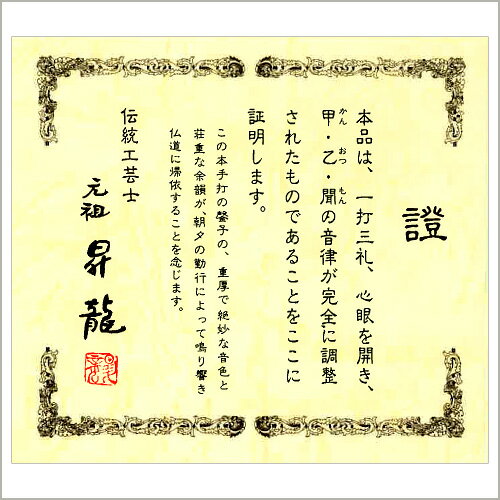 證
本品は、一打三礼、心眼を開き、
甲・乙・聞の音律が完全に調整
かん おつ もん
されたものであることをここに
証明します。
この本手打の磬子の、重厚で絶妙な音色と
荘重な余韻が、朝夕の勤行によって鳴り響き
仏道に帰依することを念じます。
伝統工芸士
元祖 昇龍